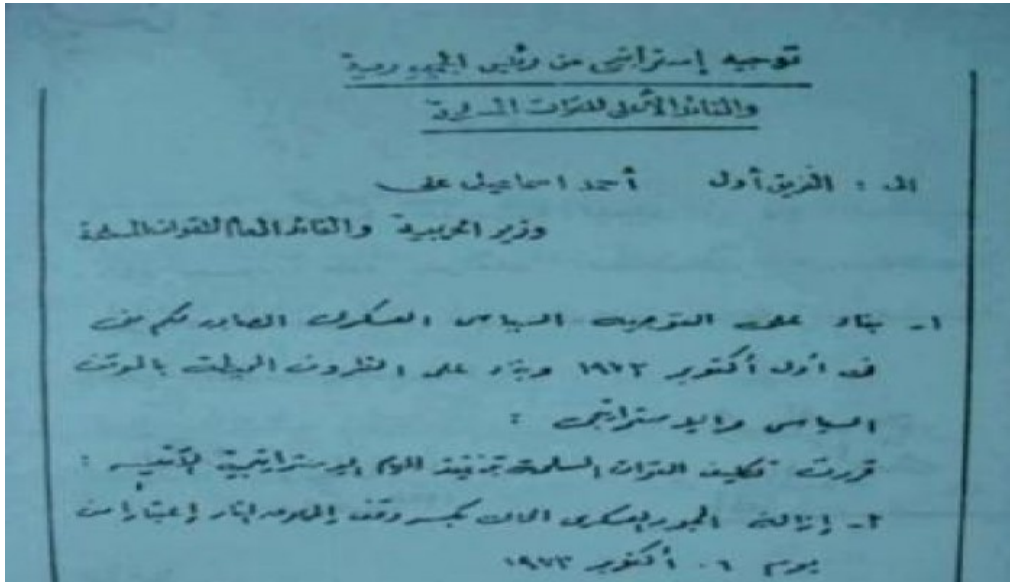 توجيه إستراتيجى من رئيس الجمهورية
والقائد الأعلى للقوات المسلحة
الى : الفريق أول أحمد اسماعيل على
وزير الحربية والقائد العام للقوات المسلحة
١- بناء على التوجيه السياسى العسكرى الصادر لكم منى
فى أول أكتوبر ١٩٧٣ وبناء على الظروف المحيطة بالموقف
السياسى والاستراتيجى :
قررت تكليف القوات المسلحة بتنفيذ المهام الاستراتيجية الآتية :
٢- إزالة الجمود العسكرى الحالى بكسر وقف إطلاق النار إعتباراً من
يوم ٦ أكتوبر ١٩٧٣